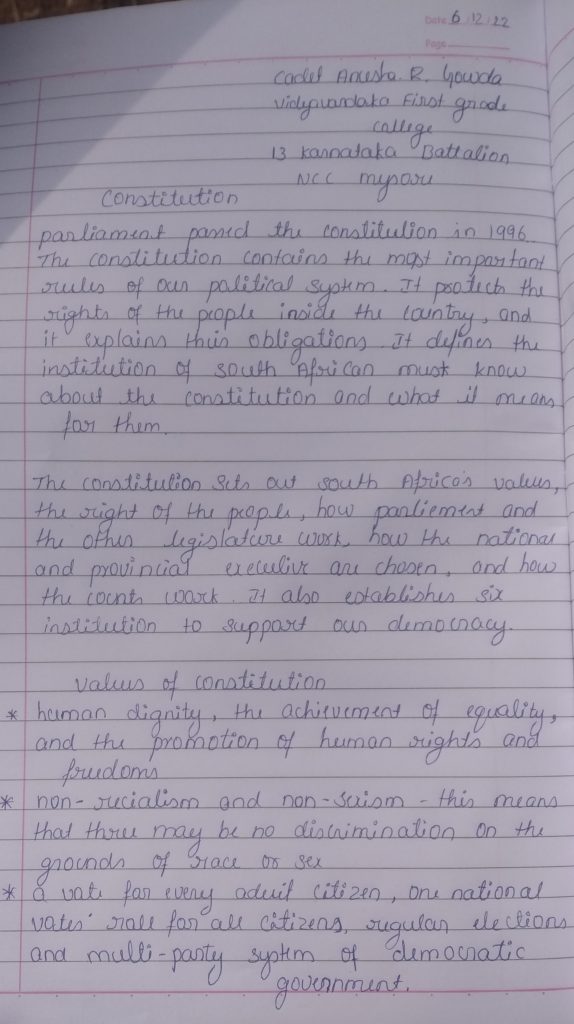 Date 6/12/22
Page
Cadet Anusha. R. Gowda
Vidyavardaka First grade
college
13 Karnataka Battalion
NCC mysore
Constitution
parliament passed the constitution in 1996.
The constitution contains the most important
rules of our political system. It protects the
rights of the people inside the country, and
it explains their obligations. It defines the
institution of south African must know
about the constitution and what it means
for them.
The constitution sets out south Africa's values,
the right of the people, how parliement and
the other legislature work, how the national
and provincial executive are chosen, and how
the courts work. It also establishes six
institution to support our democracy.
values of constitution
* human dignity, the achievement of equality,
and the promotion of human rights and
freedoms
* non-recialism and non-sexism - this means
that three may be no discrimination on the
grounds of race or sex
* a vote for every aduit citizen, one national
votes' roll for all citizens, regular elections
and multi-party system of democratic
government.